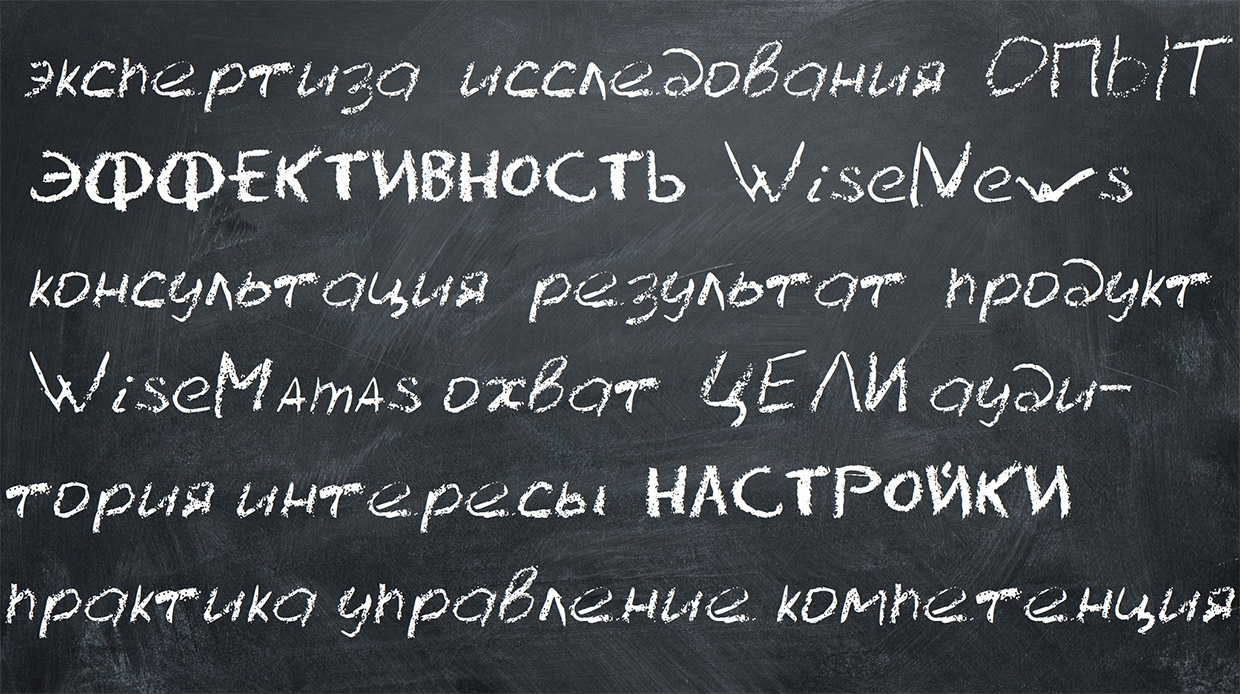 экспертиза исследования ОПЫТ
ЭФФЕКТИВНОСТЬ WiseNews
консультация результат продукт
WiseMamas охват ЦЕЛИ ауди-
тория интересы НАСТРОЙКИ
практика управление компетенция